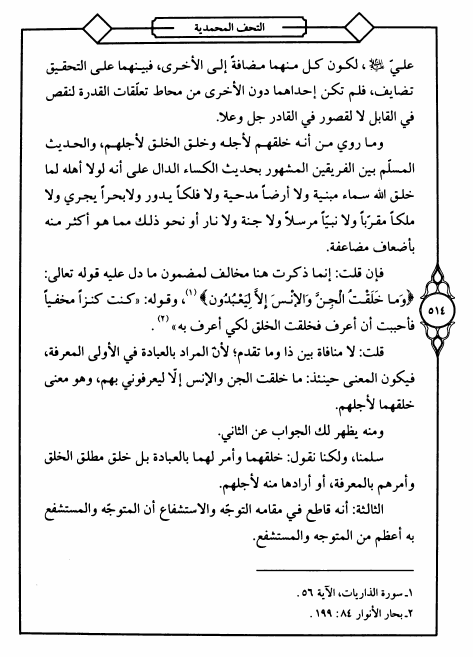 التحف المحمدية
عليّ ﷺ، لكون كل منهما مضافةً إلى الأخرى، فبينهما على التحقيق
تضايف، فلم تكن إحداهما دون الأخرى من محاط تعلّقات القدرة لنقص
في القابل لا لقصور في القادر جل وعلا.
وما روي من أنه خلقهم لأجله وخلق الخلق لأجلهم، والحديث
المسلّم بين الفريقين المشهور بحديث الكساء الدال على أنه لولا أهله لما
خلق الله سماء مبنية ولا أرضاً مدحية ولا فلكاً يدور ولابحراً يجري ولا
ملكاً مقرّباً ولا نبيّاً مرسلاً ولا جنة ولا نار أو نحو ذلك مما هو أكثر منه
بأضعاف مضاعفة.
فإن قلت: إنما ذكرت هنا مخالف لمضمون ما دل عليه قوله تعالى:
﴿وَمَا خَلَقْتُ الْجِنَّ وَالْإِنْسَ إِلاَّ لِيَعْبُدُونِ﴾(١)، وقوله: «كنت كنزاً مخفياً
فأحببت أن أعرف فخلقت الخلق لكي أعرف به»(٢).
٥١٤
قلت: لا منافاة بين ذا وما تقدم؛ لأنّ المراد بالعبادة في الأولى المعرفة،
فيكون المعنى حينئذ: ما خلقت الجن والإنس إلّا ليعرفوني بهم، وهو معنى
خلقهما لأجلهم.
ومنه يظهر لك الجواب عن الثاني.
سلمنا، ولكنا نقول: خلقهما وأمر لهما بالعبادة بل خلق مطلق الخلق
وأمرهم بالمعرفة، أو أرادها منه لأجلهم.
الثالثة: أنه قاطع في مقامه التوجّه والاستشفاع أن المتوجّه والمستشفع
به أعظم من المتوجه والمستشفع.
١ـ سورة الذاريات، الآية ٥٦.
٢ـ بحار الأنوار ٨٤: ١٩٩.